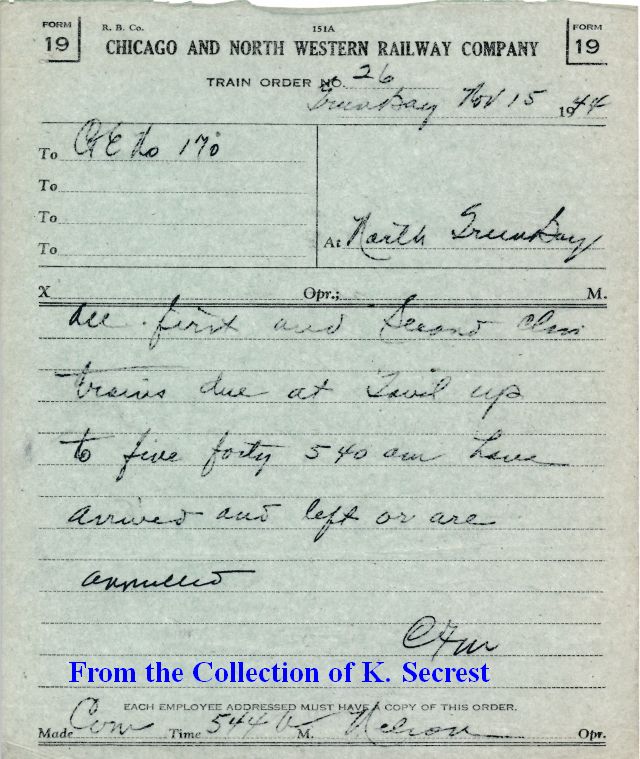 FORM 19
R. B. Co. 151A
FORM 19
CHICAGO AND NORTH WESTERN RAILWAY COMPANY
TRAIN ORDER NO. 26
Green Bay Nov 15 1944
To C&E No 170
To
To
To
At North Green Bay
X Opr.; M.
All first and Second Class
trains due at
up
to five forty 540 am have
arrived and left or are
annulled
CFM
From the Collection of K. Secrest
EACH EMPLOYEE ADDRESSED MUST HAVE A COPY OF THIS ORDER.
Made Com Time 544 A M. Nelson Opr.